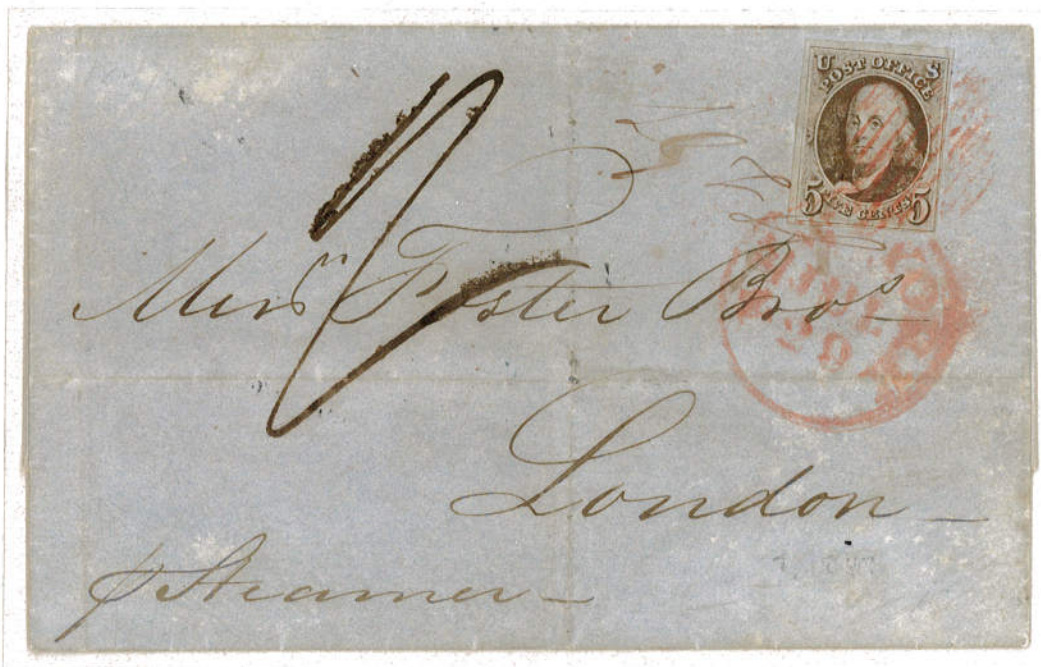 U S
POST OFFICE
5 FIVE CENTS 5
Mess.rs Foster Bros
London
p Steamer